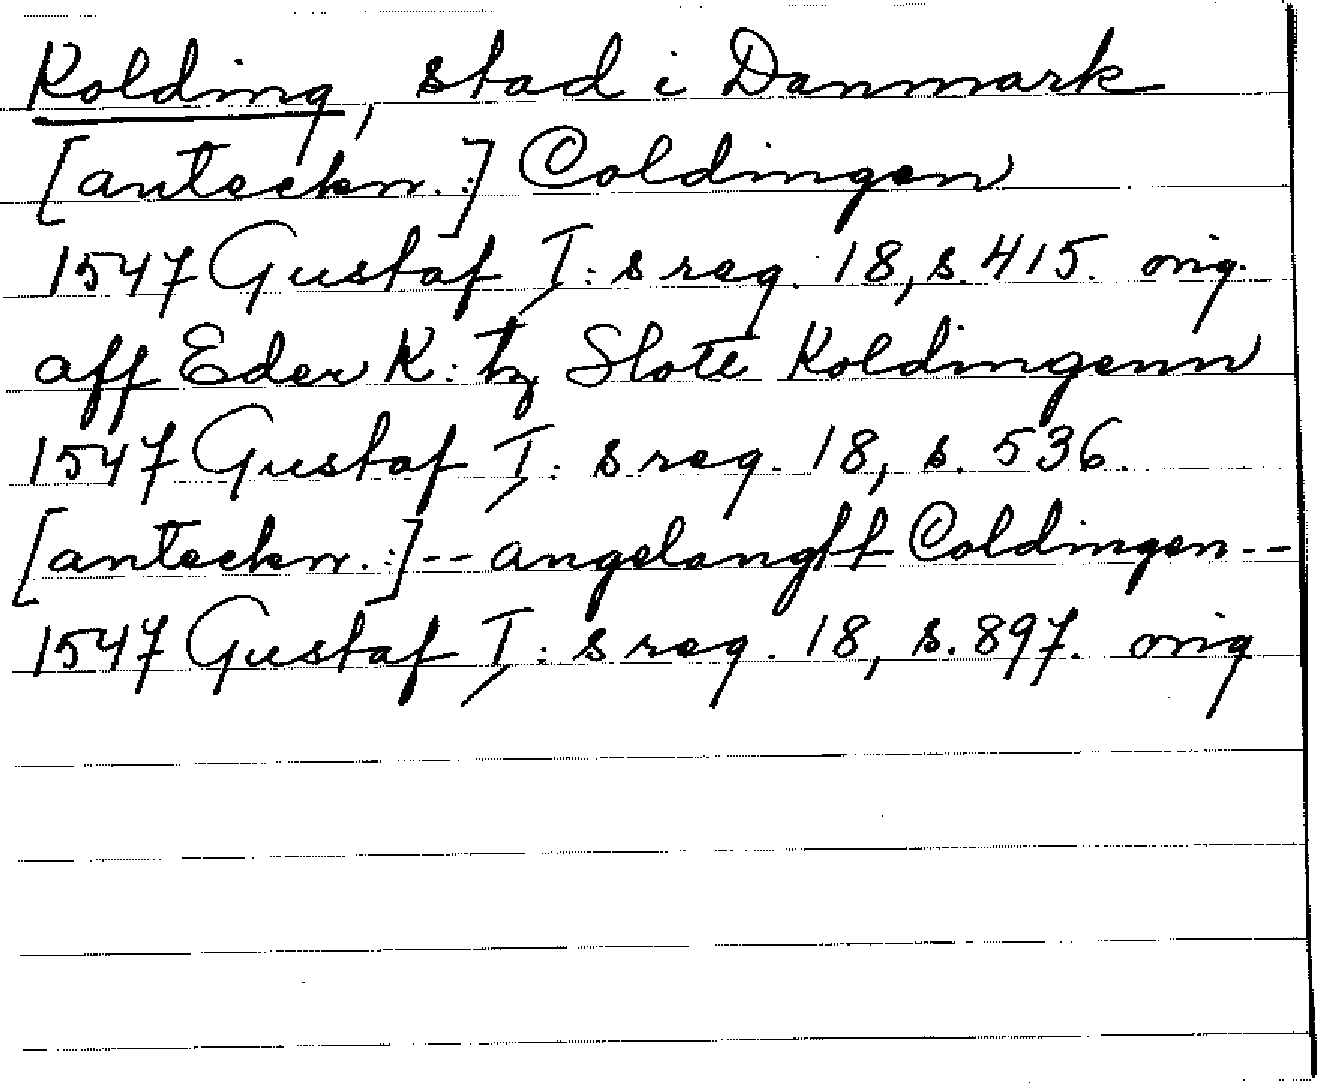 Kolding, stad i Danmark
[anteckn.:] Coldingen
1547 Gustaf I:s reg. 18, s. 415. orig.
aff Eder K: tz Slote Koldingenn
1547 Gustaf I:s reg. 18, s. 536.
[anteckn.:] -- angelangtt Coldingen --
1547 Gustaf I:s reg. 18, s. 897. orig